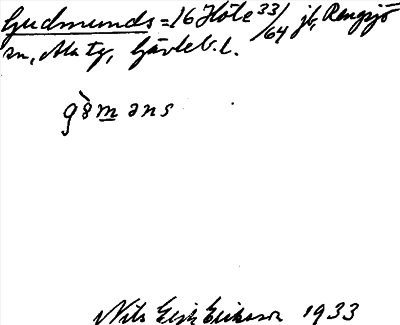 Gudmunds = 16 Höle 33/64 jb, Rengsjö
sn, Ala tg, Gävleb. l.
gò̀mans
Nils Erik Eriksson 1933